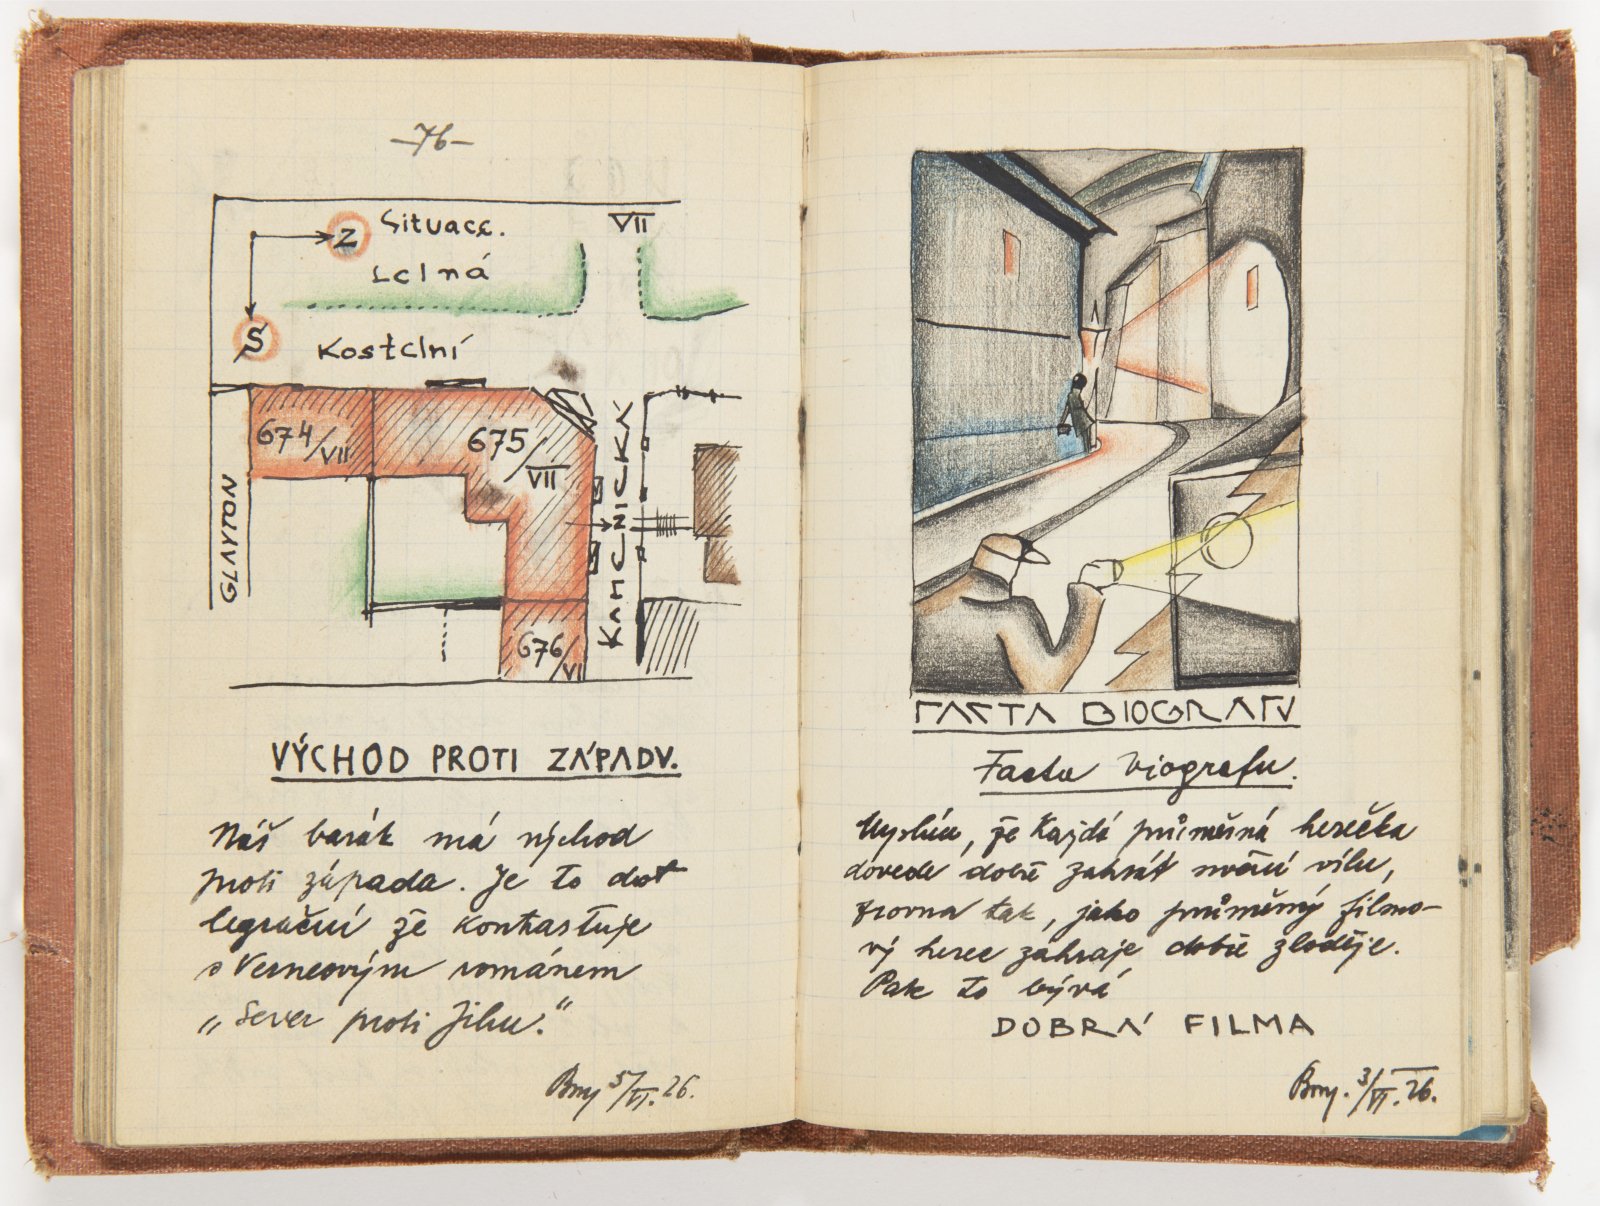 —76—
Z
Situace.
VII
Letná
S
Kostelní
674/VII
675/VII
KAMENICKÁ
676/VI
VÝCHOD PROTI ZÁPADU.
Náš barák má východ
proti západa. Je to dost
legrační že kontrastuje
s Verneovým románem
„Sever proti Jihu.“
5/VI. 26.
FACTA BIOGRAFU
Facta biografu.
Myslím, že každá průměrná herečka
dovede dobře zahrát noční vílu,
zrovna tak, jako průměrný filmo-
vý herec zahraje dobře zloděje.
Pak to bývá
DOBRÁ FILMA
3/VI. 26.